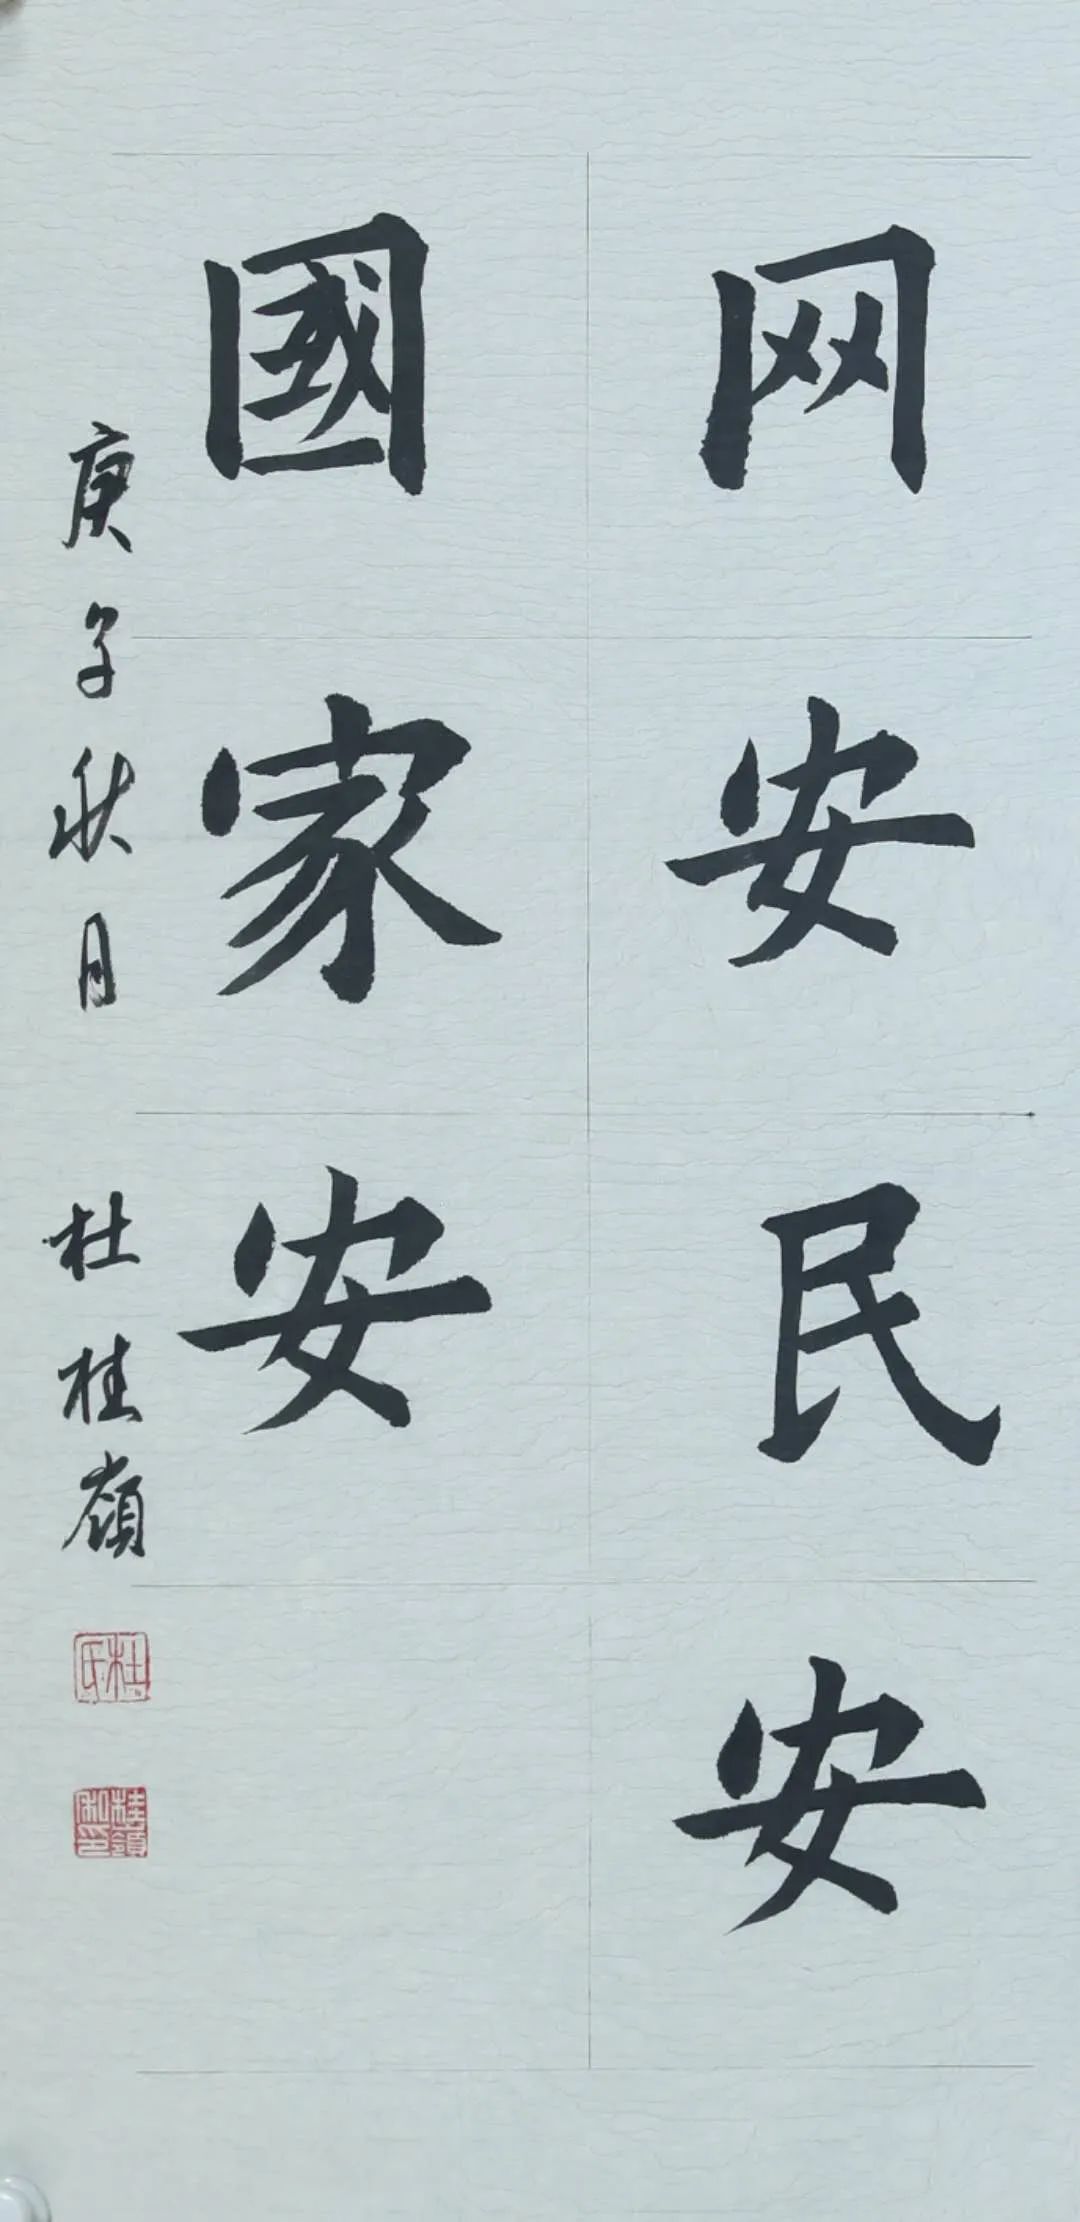 网安民安
國家安
庚子秋月 杜桂嶺
杜氏
桂嶺私印